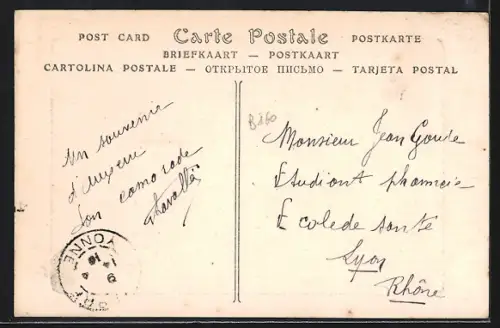 POST CARD Carte Postale POSTKARTE
BRIEFKAART — POSTKAART
CARTOLINA POSTALE — ОТКРЫТОЕ ПИСЬМО — TARJETA POSTAL
Un souvenir
d'Auxerre
Ton camarade
B160
Monsieur Jean Goude
Etudiant pharmacie
Ecole de santé
Lyon
Rhône
YONNE